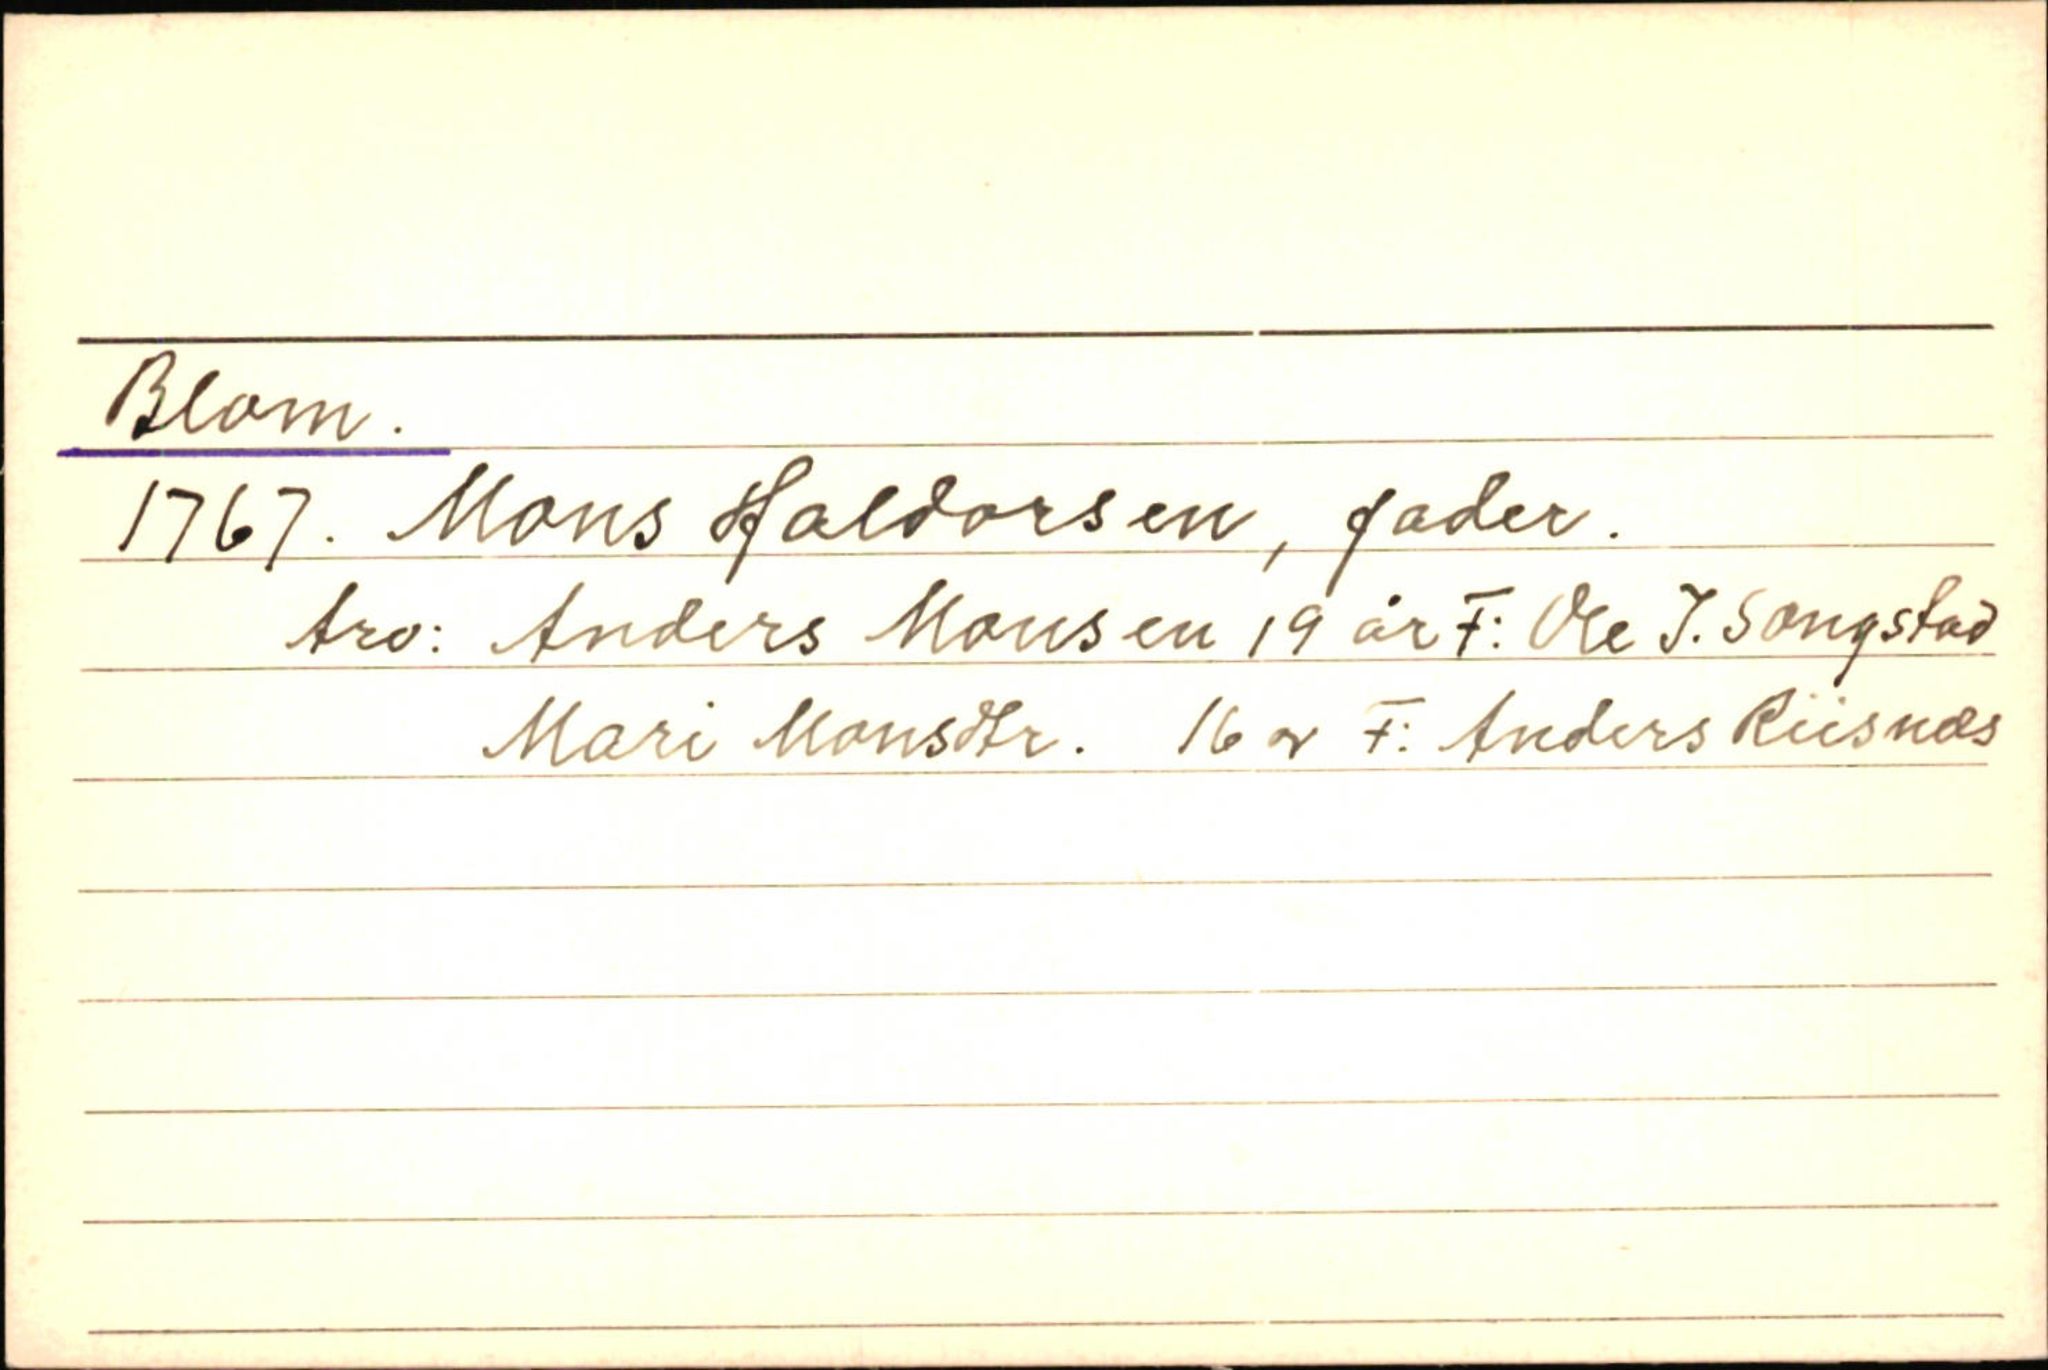 Blom.
1767. Mons Haldorsen, fader.
Arv: Anders Monsen 19 år F: Ole J. Songstad
Mari Monsdtr. 16 " F: Anders Riisnæs